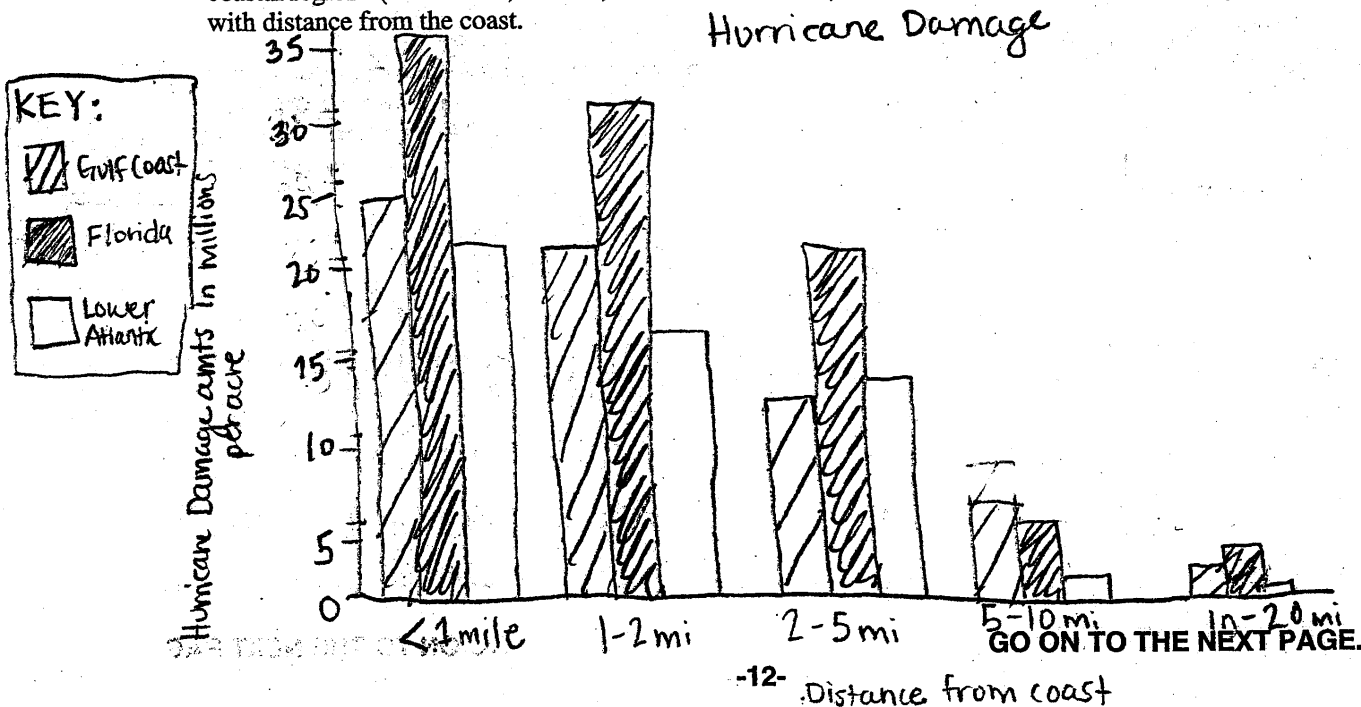 with distance from the coast.
Hurricane Damage
KEY:
Gulf Coast
Florida
Lower
Atlantic
Hurricane Damage amts in millions
per acre
35
30
25
20
15
10
5
0
<1mile
1-2 mi
2-5 mi
5-10 mi
10-20 mi
GO ON TO THE NEXT PAGE.
-12-
Distance from coast